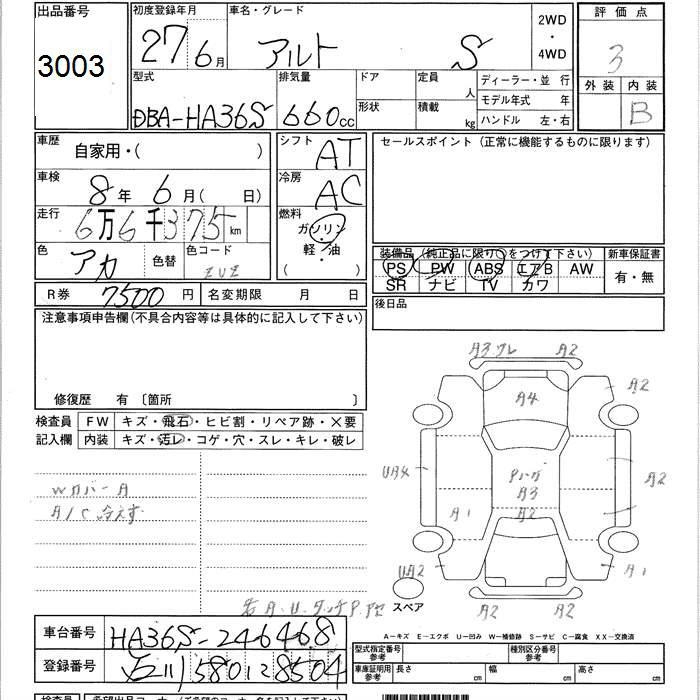 出品番号
3003
初度登録年月
27 6月
車名・グレード
アルト S
2WD
・
4WD
評価点
3
外装 内装
B
型式
DBA-HA36S
排気量
660cc
ドア
形状
定員
人
積載
kg
ディーラー・並 行
モデル年式 年
ハンドル 左・右
車歴
自家用・( )
シフト
AT
セールスポイント (正常に機能するものに限ります)
車検
8年 6月( 日)
冷房
AC
走行
6万6千375km
燃料
ガソリン
軽・油
( )
色
アカ
色替
色コード
ZUZ
装備品 (純正品に限り○をつけて下さい)
PS PW ABS エアB AW
SR ナビ TV カワ
新車保証書
有・無
R券 7500円
名変期限 月 日
後日品
注意事項申告欄(不具合内容等は具体的に記入して下さい)
修復歴 有 〔箇所 〕
検査員
記入欄
FW キズ・飛石・ヒビ割・リペア跡・×要
内装 キズ・汚レ・コゲ・穴・スレ・キレ・破レ
Wカバー A
A/C 冷えず
A3 ワレ A2
A4 A2
UA4 A3 A2
A1 A2
UA2 A1
スペア
A2 A2
車台番号 HA36S-246468
登録番号 石川 580 い 8504
A－キズ E－エクボ U－凹み W－補修跡 S－サビ C－腐食 XX－交換済
型式指定番号
参考
種別区分番号
参考
車庫証明用
参考
長さ cm 幅 cm 高さ cm